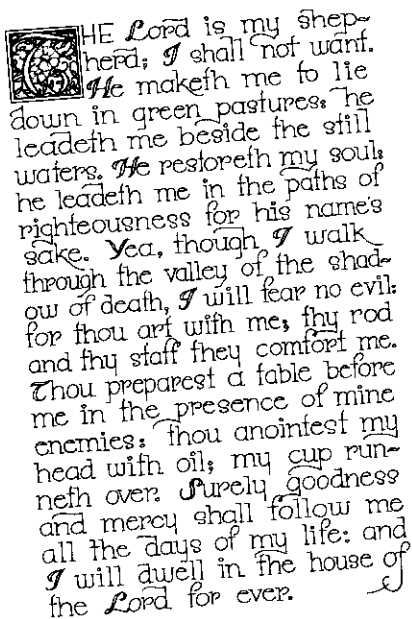 THE Lord is my shep-
herd; I shall not want.
He maketh me to lie
down in green pastures: he
leadeth me beside the still
waters. He restoreth my soul:
he leadeth me in the paths of
righteousness for his name's
sake. Yea, though I walk
through the valley of the shad-
ow of death, I will fear no evil:
for thou art with me; thy rod
and thy staff they comfort me.
Thou preparest a table before
me in the presence of mine
enemies: thou anointest my
head with oil; my cup run-
neth over. Surely goodness
and mercy shall follow me
all the days of my life: and
I will dwell in the house of
the Lord for ever.